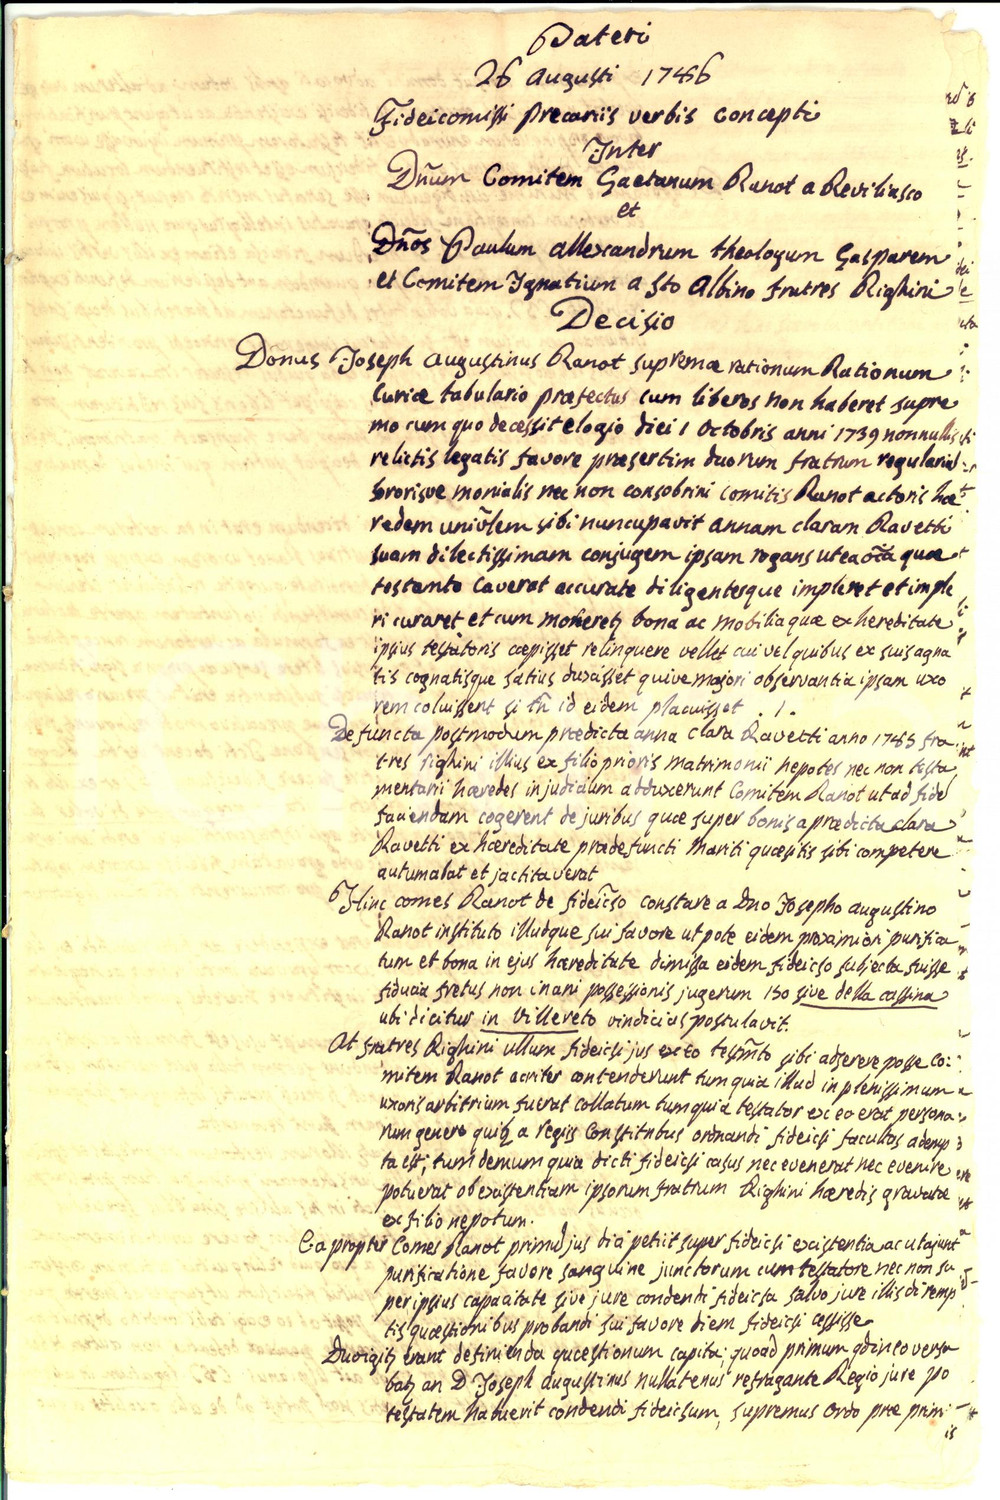 Pateri
26 Augusti 1746
Fideicomissi precariis verbis concepti
Inter
Dñum Comitem Gaetanum Ranot a Reviliasco
et
Dños Paulum Allexandrum theologum Gasparem
et Comitem Ignatium a Sto Albino fratres Righini
Decisio
Donus Joseph Augustinus Ranot supremæ rationum Rationum
Curiæ tabulario præfectus cum liberos non haberet supre
mo cum quo decessit elogio diei 1 Octobris anni 1739 nonnullis
relictis legatis favore præsertim duorum fratrum regularium
sororisve monialis nec non consobrini comitis Ranot actoris hæ
redem univlem sibi nuncupavit Annam claram Ravetti
suam dilectissimam conjugem ipsam rogans ut ea oia quæ
testamto caverat accurate diligenterque impleret et imple
ri curaret et cum bona ac mobilia quæ ex hereditate
ipsius testatoris cæpisset relinquere vellet cui vel quibus ex suis agna
tis cognatisque satius duxisset quive majori observantia ipsam uxo
rem coluissent si tñ id eidem placuisset . / .
Defuncta postmodum prædicta anna clara Ravetti anno 1745 fra
tres righini illius ex filio prioris matrimonii nepotes nec non testa
mentarii hæredes in judicium adduxerunt Comitem Ranot ut ad fide
faciendam cogerent de juribus quæ super bonis a prædicta clara
Ravetti ex hæreditate prædefuncti mariti quæsitis sibi competere
autumabat et jactitaverat
Hinc comes Ranot de fideicso constare a Dno Josepho augustino
Ranot instituto illudque sui favore ut pote eidem proximiori purifica
tum et bona in ejus hæreditate dimissa eidem fideicso subjecta fuisse
fiducia fretus non inani possessionis jugerum 130 sive della cassina
ubi dicitur in Villereto vindicius postulavit.
At fratres Righini ullum fideicsi jus ex eo testmto sibi adserere posse Co:
mitem Ranot acriter contenderunt tum quia illud in plenissimum
uxoris arbitrium fuerat collatum tum quia testator ex eo erat persona
rum genere quibz a regiis Constitnbus ordnandi fideicsi facultas ademp
ta est; tum demum quia dicti fideicsi casus nec evenerat nec evenire
potuerat ob existentiam ipsorum fratrum Righini hæredis gravatæ
ex filio nepotum.
Ea propter Comes Ranot primu jus dici petiit super fideicsi existentia ac
purificatione favore sanguine junctorum cum testatore nec non su
per ipsius capacitate sive jure condendi fideicsa salvo jure illis diremp
tis quæstionibus probandi sui favore diem fideicsi cessisse
Duo igitz erant definienda quæstionum capita; quoad primum qdem eo versa
batz an D Joseph Augustinus nullatenus refragante Regio jure po
testatem habuerit condendi fideicsum, supremus ordo præ prim
is